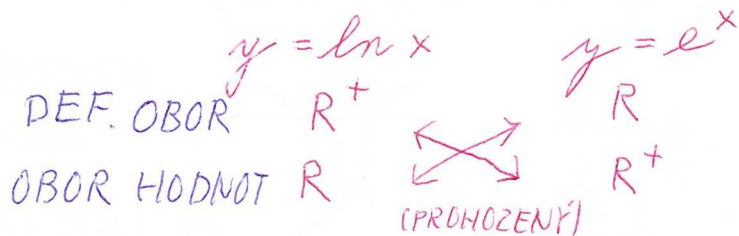 y = ln x y = e^x
DEF. OBOR R^+ R
OBOR HODNOT R R^+
(PROHOZENÝ)